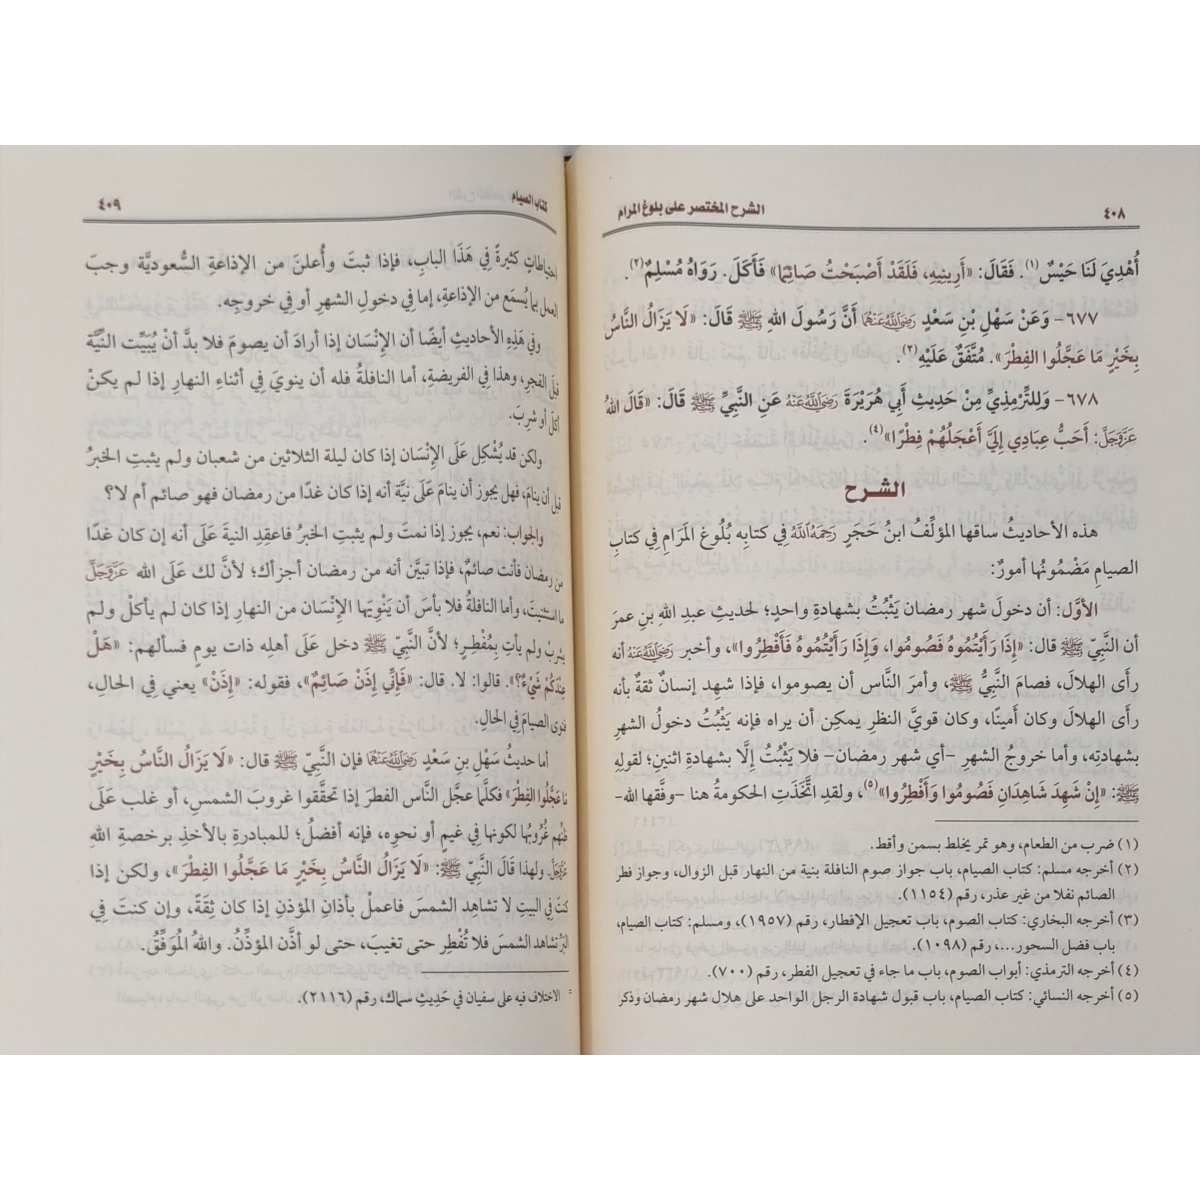 ٤٠٨
الشرح المختصر على بلوغ المرام
أُهْدِيَ لَنَا حَيْسٌ (١). فَقَالَ: «أَرِينِيهِ، فَلَقَدْ أَصْبَحْتُ صَائِمًا» فَأَكَلَ. رَوَاهُ مُسْلِمٌ (٢).
٦٧٧- وَعَنْ سَهْلِ بْنِ سَعْدٍ رَضِيَ اللَّهُ عَنْهُمَا أَنَّ رَسُولَ اللهِ ﷺ قَالَ: «لَا يَزَالُ النَّاسُ
بِخَيْرٍ مَا عَجَّلُوا الفِطْرَ». مُتَّفَقٌ عَلَيْهِ (٣).
٦٧٨- وَلِلتِّرْمِذِيِّ مِنْ حَدِيثِ أَبِي هُرَيْرَةَ رَضِيَ اللَّهُ عَنْهُ عَنِ النَّبِيِّ ﷺ قَالَ: «قَالَ اللهُ
عَزَّ وَجَلَّ: أَحَبُّ عِبَادِي إِلَيَّ أَعْجَلُهُمْ فِطْرًا» (٤).
الشرح
هذه الأحاديثُ ساقها المؤلِّفُ ابنُ حَجَرٍ رَحِمَهُ اللَّهُ فِي كتابِه بُلُوغ المَرَام فِي كتابِ
الصيامِ مَضْمُونُها أمورٌ:
الأَوَّل: أن دخولَ شهر رمضان يَثْبُتُ بشهادةِ واحدٍ؛ لحديثِ عبدِ الله بنِ عمرَ
أن النَّبِيَّ ﷺ قال: «إِذَا رَأَيْتُمُوهُ فَصُومُوا، وَإِذَا رَأَيْتُمُوهُ فَأَفْطِرُوا»، وأخبر رَضِيَ اللَّهُ عَنْهُ أنه
رأى الهلالَ، فصامَ النَّبِيُّ ﷺ، وأمرَ النَّاس أن يصوموا، فإذا شهِد إنسانٌ ثقةٌ بأنه
رأى الهلالَ وكان أمينًا، وكان قويَّ النظرِ يمكِن أن يراه فإنه يَثْبُتُ دخولُ الشهرِ
بشهادتِه، وأما خروجُ الشهرِ -أي شهر رمضان- فلا يَثْبُتُ إلَّا بشهادةِ اثنينِ؛ لقولِهِ
ﷺ: «إِنْ شَهِدَ شَاهِدَانِ فَصُومُوا وَأَفْطِرُوا» (٥)، ولقدِ اتَّخَذَتِ الحكومةُ هنا -وفَّقها الله-
(١) ضرب من الطعام، وهو تمر يخلط بسمن وأقط.
(٢) أخرجه مسلم: كتاب الصيام، باب جواز صوم النافلة بنية من النهار قبل الزوال، وجواز فطر
الصائم نفلا من غير عذر، رقم (١١٥٤).
(٣) أخرجه البخاري: كتاب الصوم، باب تعجيل الإفطار، رقم (١٩٥٧)، ومسلم: كتاب الصيام،
باب فضل السحور...، رقم (١٠٩٨).
(٤) أخرجه الترمذي: أبواب الصوم، باب ما جاء في تعجيل الفطر، رقم (٧٠٠).
(٥) أخرجه النسائي: كتاب الصيام، باب قبول شهادة الرجل الواحد على هلال شهر رمضان وذكر
كتاب الصيام
٤٠٩
احتياطاتٍ كثيرةً فِي هَذَا البابِ، فإذا ثبتَ وأُعلنَ من الإذاعةِ السُّعوديَّة وجبَ
العمل بما يُسمَع من الإذاعةِ، إما في دخولِ الشهرِ أو في خروجِه.
وفي هَذِهِ الأحاديثِ أيضًا أن الإنْسَان إذا أرادَ أن يصومَ فلا بدَّ أنْ يُبيِّت النِّيَّة
قبلَ الفجرِ، وهذا في الفريضةِ، أما النافلةُ فله أن ينويَ في أثناءِ النهارِ إذا لم يكنْ
أكلَ أو شرِبَ.
ولكن قد يُشْكِل عَلَى الإنْسَان إذا كان ليلة الثلاثين من شعبان ولم يثبتِ الخبرُ
قبل أن ينامَ، فهل يجوز أن ينامَ عَلَى نيَّة أنه إذا كان غدًا من رمضان فهو صائم أم لا؟
والجوابُ: نعم، يجوز إذا نمتَ ولم يثبتِ الخبرُ فاعقِدِ النيةَ عَلَى أنه إن كان غدًا
من رمضان فأنت صائمٌ، فإذا تبيَّن أنه من رمضان أجزأك؛ لأنَّ لك عَلَى الله عَزَّ وَجَلَّ
ما استثنيتَ، وأما النافلةُ فلا بأسَ أن يَنْوِيَها الإنْسَان من النهارِ إذا كان لم يأكلْ ولم
يشربْ ولم يأتِ بمُفْطِرٍ؛ لأنَّ النَّبِيّ ﷺ دخل عَلَى أهلِه ذات يومٍ فسألهم: «هَلْ
عِنْدَكُمْ شَيْءٌ؟». قالوا: لا. قال: «فَإِنِّي إِذَنْ صَائِمٌ»، فقوله: «إِذَنْ» يعني فِي الحالِ،
فنوى الصيامَ فِي الحالِ.
أما حديثُ سَهْلِ بنِ سَعْدٍ رَضِيَ اللَّهُ عَنْهُمَا فإن النَّبِيّ ﷺ قال: «لَا يَزَالُ النَّاسُ بِخَيْرٍ
مَا عَجَّلُوا الفِطْرَ» فكلَّما عجَّل النَّاس الفطرَ إذا تحقَّقوا غروبَ الشمسِ، أو غلب عَلَى
ظنِّهم غُرُوبُها لكونها في غيمٍ أو نحوِه، فإنه أفضلُ؛ للمبادرةِ بالأخذِ برخصةِ الله
عَزَّ وَجَلَّ. ولهذا قَالَ النَّبِيّ ﷺ: «لَا يَزَالُ النَّاسُ بِخَيْرٍ مَا عَجَّلُوا الفِطْرَ»، ولكن إذا
كنتَ فِي البيتِ لا تشاهد الشمسَ فاعملْ بأذانِ المؤذنِ إذا كان ثقةً، وإن كنتَ في
البَرِّ تشاهد الشمسَ فلا تُفْطِر حتى تغيبَ، حتى لو أذَّن المؤذِّنُ. واللهُ المُوَفِّقُ.
= الاختلاف فيه على سفيان في حَدِيثِ سماك، رقم (٢١١٦).